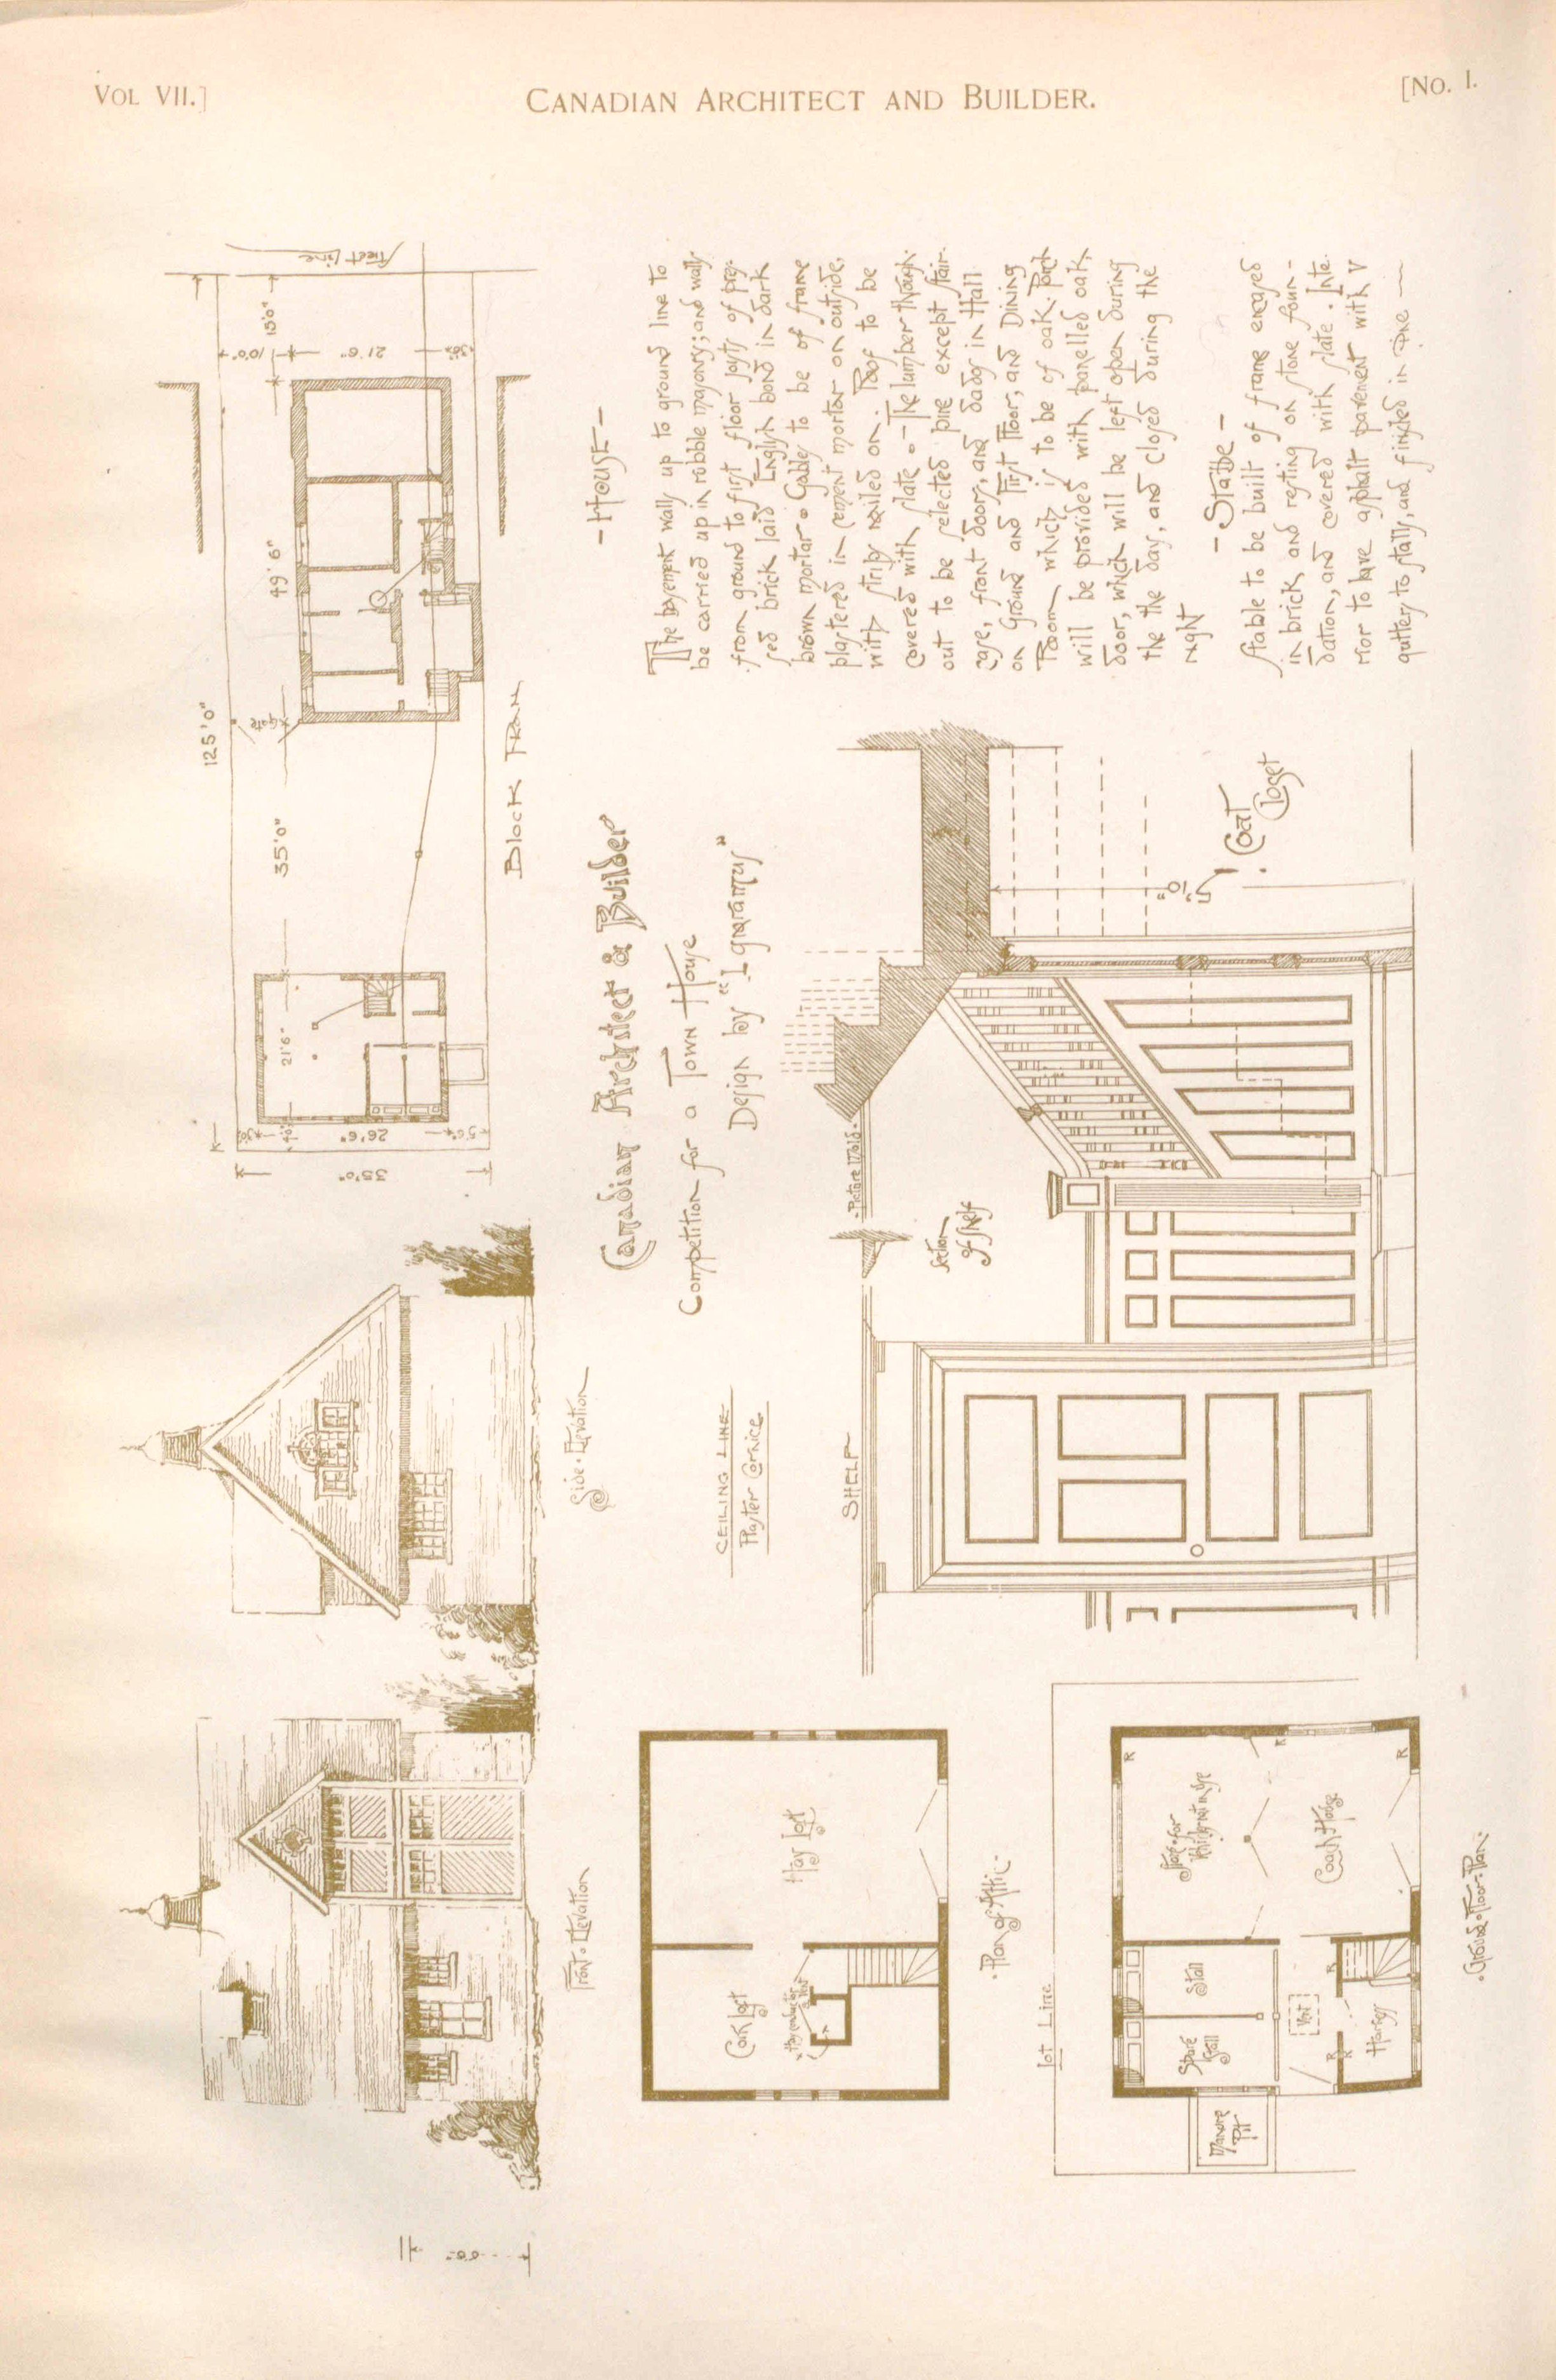 VOL VII.]
CANADIAN ARCHITECT AND BUILDER.
[NO. I.
Front · Elevation
Side · Elevation
125'0"
35'0"
49'6"
15'0"
10'0"
21'6"
Street Line
Gate
21'6"
26'6"
35'0"
Block Plan
Canadian Architect & Builder
Competition for a Town House
Design by "Ignoramus"
- House -
The basement walls up to ground line to
be carried up in rubble masonry; and walls
from ground to first floor joists of pres-
sed brick laid English bond in dark
brown mortar. Gables to be of frame
plastered in cement mortar on outside,
with strips nailed on. Roof to be
covered with slate. - The lumber through-
out to be selected pine except stair-
case, front doors, and dado in Hall
on Ground and First Floor, and Dining
Room which is to be of oak. Porch
will be provided with panelled oak
door, which will be left open during
the the day, and closed during the
night
- Stable -
Stable to be built of frame encased
in brick and resting on stone foun-
dation, and covered with slate. Inte-
rior to have asphalt pavement with V
gutters to stalls, and finished in pine
CEILING LINE
Plaster Cornice
SHELF
- Picture Mold -
Section
of Shelf
5'0"
Coat
Closet
Hay Loft
Cock Loft
· Plan of Attic ·
Lot Line
Space for
Vehicles not in use
Coach House
Stall
Spare
Stall
Vent
Harness
Manure
Pit
R
R
R
R
R
R
· Ground Floor Plan ·